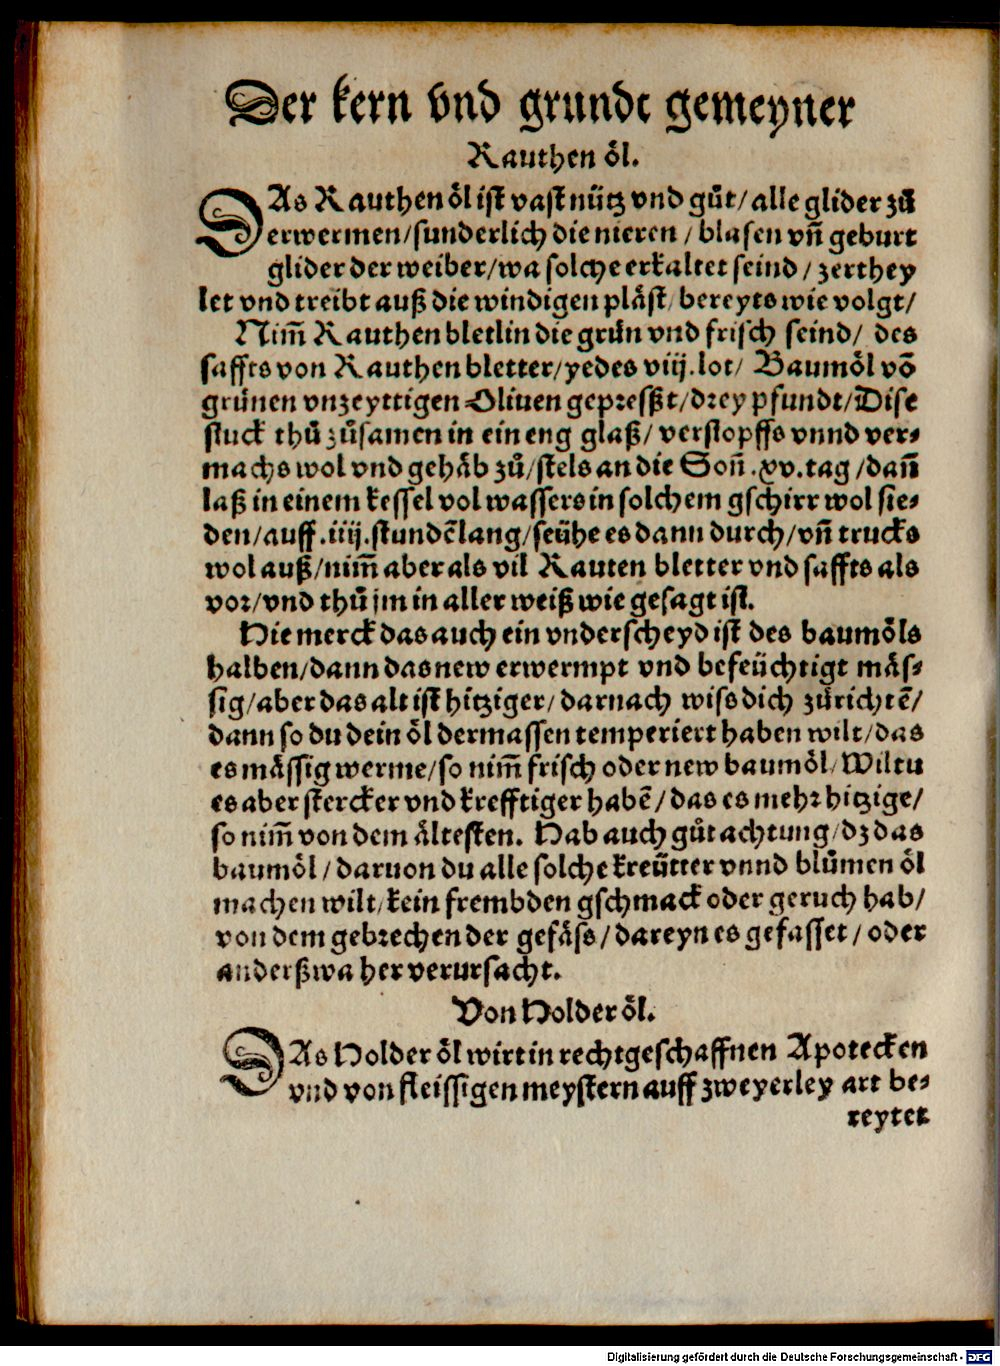 Der kern vnd grundt gemeyner
Rauthen öl.
DAs Rauthen öl ist vast nütz vnd gůt/ alle glider zů
erwermen/sunderlich die nieren / blasen vñ geburt
glider der weiber/wa solche erkaltet seind / zerthey
let vnd treibt auß die windigen pläst/ bereyts wie volgt/
Nim̃ Rauthen bletlin die grün vnd frisch seind/ des
saffts von Rauthen bletter/yedes viij.lot/ Baumöl võ
grünen vnzeyttigen Oliuen gepresßt/drey pfundt/Dise
stuck thů zůsamen in ein eng glaß/ verstopffs vnnd ver⸗
machs wol vnd gehäb zů/stels an die Soñ .xv.tag /dañ
laß in einem kessel vol wassers in solchem gschirr wol sie⸗
den/auff .iiij.stundẽ lang/seühe es dann durch/vñ trucks
wol auß/nim̃ aber als vil Rauten bletter vnd saffts als
vor/vnd thů jm in aller weiß wie gesagt ist.
Hie merck das auch ein vnderscheyd ist des baumöls
halben/dann das new erwermpt vnd befeüchtigt mäs⸗
sig/aber das alt ist hitziger/ darnach wiss dich zůrichtẽ/
dann so du dein öl dermassen temperiert haben wilt/das
es mässig werme/so nim̃ frisch oder new baumöl/Wiltu
es aber stercker vnd krefftiger habẽ/das es mehr hitzige/
so nim̃ von dem ältesten. Hab auch gůt achtung/dz das
baumöl/ daruon du alle solche kreütter vnnd blůmen öl
machen wilt/kein frembden gschmack oder geruch hab/
von dem gebrechen der gefäss/dareyn es gefasset/ oder
anderßwa her verursacht.
Von Holder öl.
DAs Holder öl wirt in rechtgeschaffnen Apotecken
vnd von fleissigen meystern auff zweyerley art be⸗
reytet
Digitalisierung gefördert durch die Deutsche Forschungsgemeinschaft - DFG